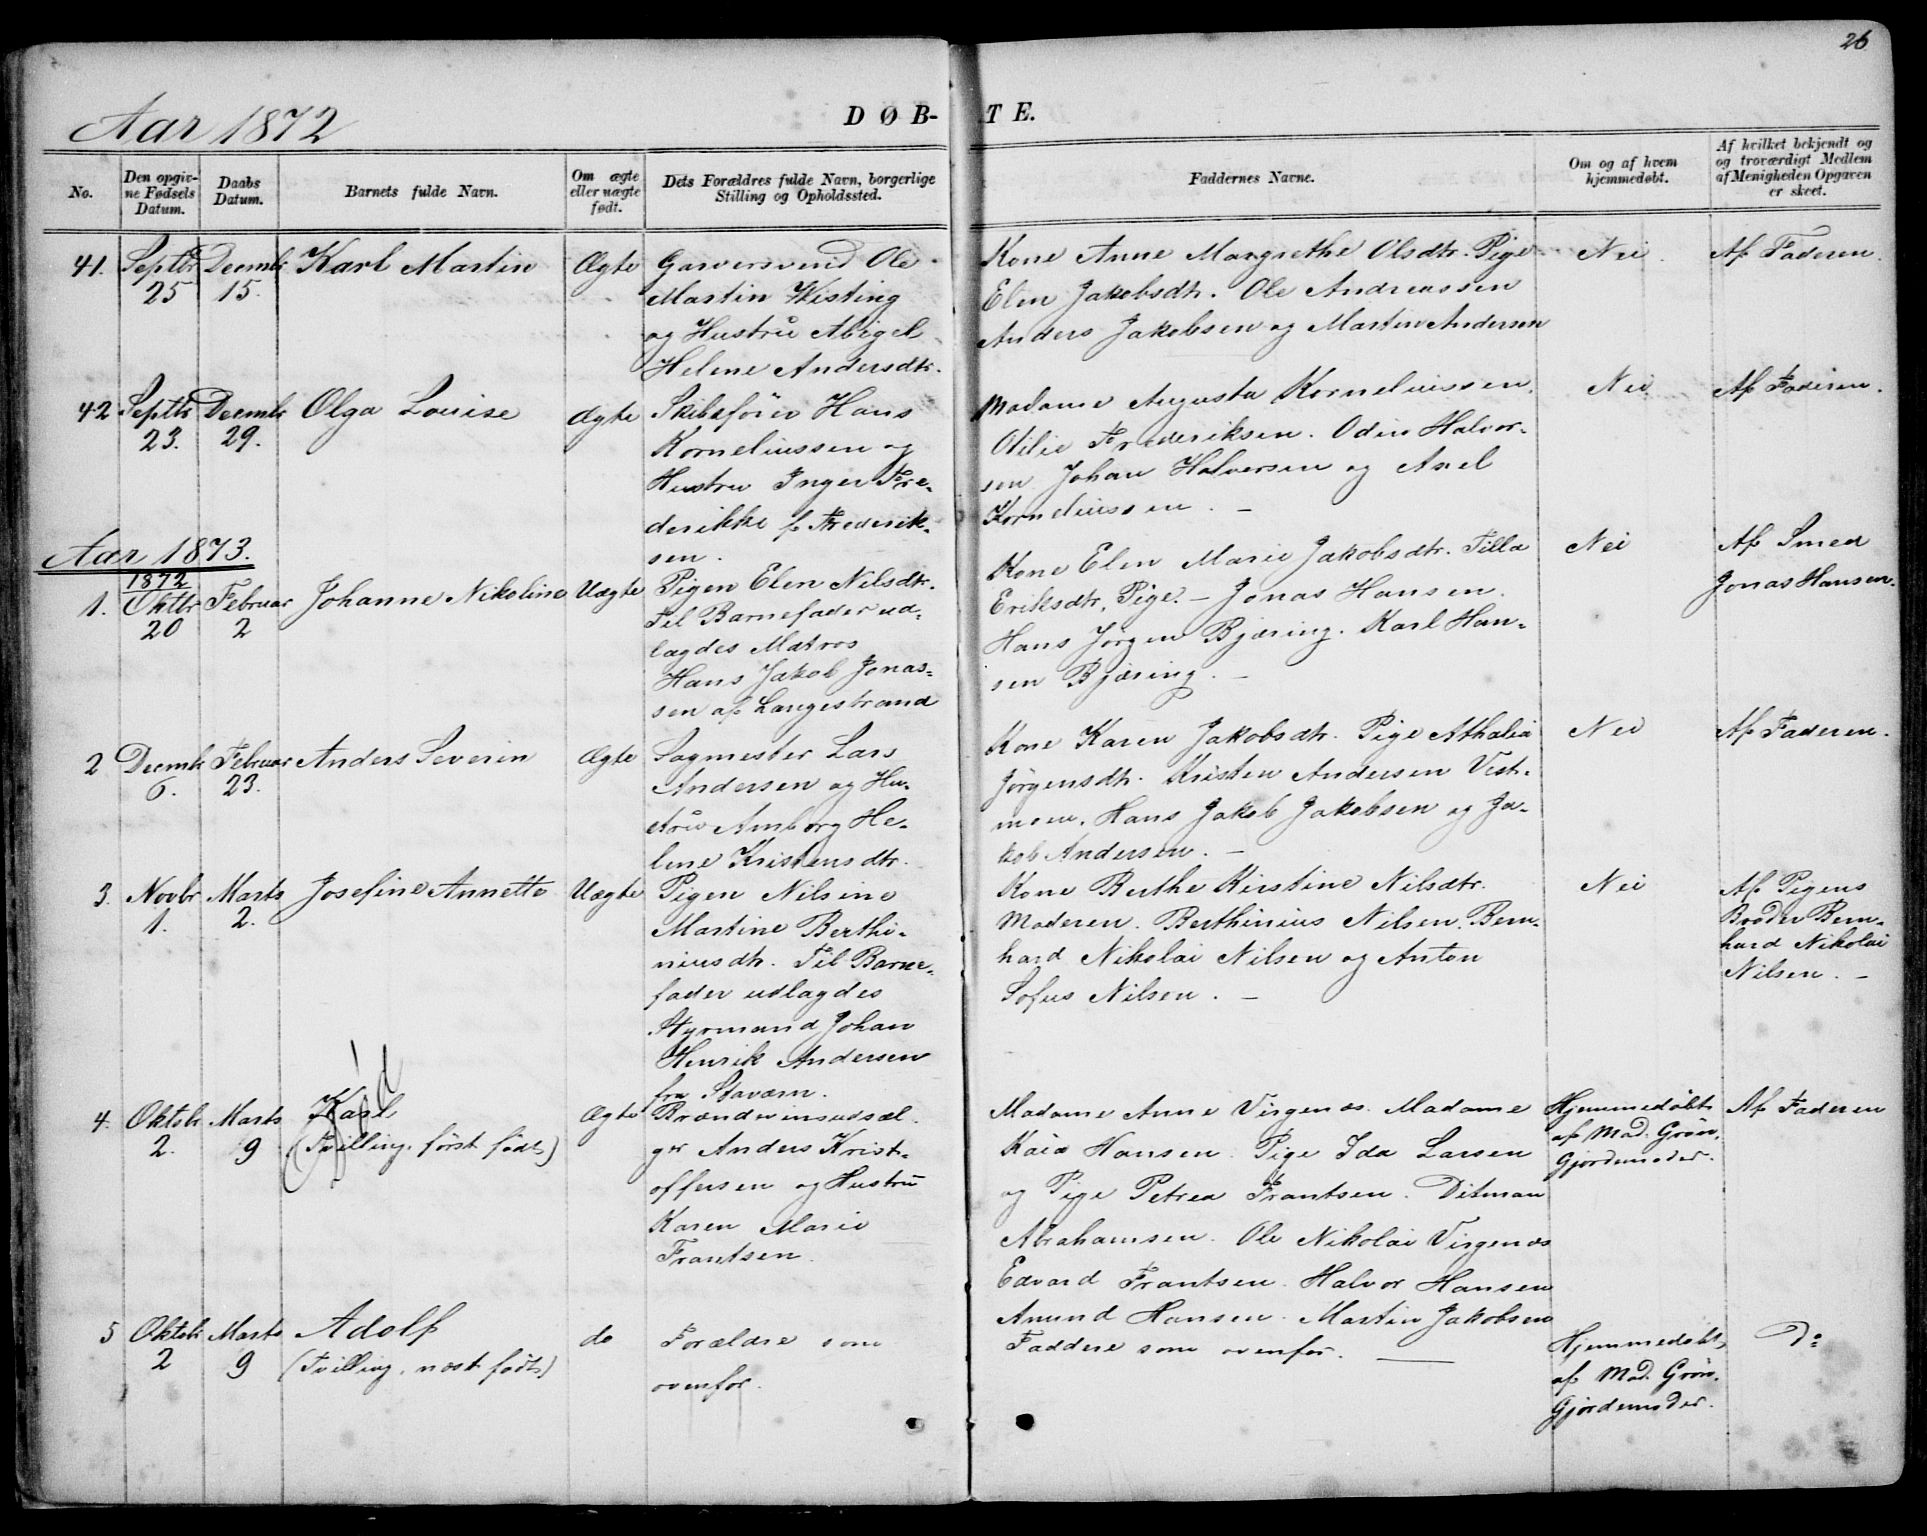 26
Aar 1872
DØB-
TE.
No.
Den opgiv-
ne Fødsels
Datum.
Daabs
Datum.
Barnets fulde Navn.
Om ægte
eller uægte
født.
Dets Forældres fulde Navn, borgerlige
Stilling og Opholdssted.
Faddernes Navne.
Om og af hvem
hjemmedøbt.
Af hvilket bekjendt og
og troværdigt Medlem
af Menigheden Opgaven
er skeet.
41.
Septbr
25
Decmbr
15.
Karl Martin
Ægte
Garversvend Ole
Martin Wisting
og Hustru Abigel
Helene Andersdtr.
Kone Anne Margrethe Olsdtr. Pige
Elen Jakobsdtr. Ole Andreassen
Anders Jakobsen og Martin Andersen
Nei.
Af Faderen.
42
Septbr
23.
Decmbr
29.
Olga Louise
Ægte
Skibsfører Hans
Korneliussen og
Hustru Inger Fre-
derikke f. Frederik-
sen.
Madame Augusta Korneliussen.
Otilie Frederiksen. Odin Halvor-
sen Johan Halversen og Axel
Korneliussen. —
Nei
Af Faderen.
Aar 1873.
1872
1.
Oktbr
20
Februar
2
Johanne Nikoline
Uægte
Pigen Elen Nilsdtr.
Til Barnefader ud-
lagdes Matros
Hans Jakob Jonas-
sen af Langestrand
Kone Elen Marie Jakobsdtr. Tilla
Eriksdtr, Pige. — Jonas Hansen.
Hans Jørgen Bjæring. Karl Han-
sen Bjæring. —
Nei
Af Smed
Jonas Hansen.
2
Decmbr
6.
Februar
23.
Anders Severin
Ægte
Sagmester Lars
Andersen og Hu-
stru Amborg He-
lene Kristensdtr.
Kone Karen Jakobsdtr. Pige Athalia
Jørgensdtr. Kristen Andersen Vest-
moen. Hans Jakob Jakobsen og Ja-
kob Andersen. —
Nei
Af Faderen.
3.
Novbr
1.
Marts
2.
Josefine Annette
Uægte
Pigen Nilsine
Martine Berthi-
niusdtr. Til Barne-
fader udlagdes
Styrmand Johan
Henrik Andersen
fra Staværn.
Kone Berthe Kirstine Nilsdtr.
Moderen. Berthinius Nilsen. Bern-
hard Nikolai Nilsen og Anton
Sofus Nilsen. —
Nei
Af Pigens
Broder Bern-
hard Nikolai
Nilsen. —
4.
Oktbr
2.
Marts
9
Karl
(Tvilling, først født)
Død
Ægte
Brændevinsudsæl-
ger Anders Krist-
offersen og Hustru
Karen Marie
Frantsen.
Madame Anne Virgenæs. Madame
Kaia Hansen. Pige Ida Larsen
og Pige Petrea Frantsen. Ditman
Abrahamsen. Ole Nikolai Virgenæs
Edvard Frantsen. Halvor Hansen
Amund Hansen. Martin Jakobsen
Hjemmedøbt
af Mad. Grøn.
Gjordemoder.
Af Faderen
5
Oktbr
2
Marts
9
Adolf
(Tvilling, næst født)
do
Forældre som
ovenfor.
Faddere som ovenfor. —
Hjemmedøbt
af Mad. Grøn.
Gjordemoder.
Do